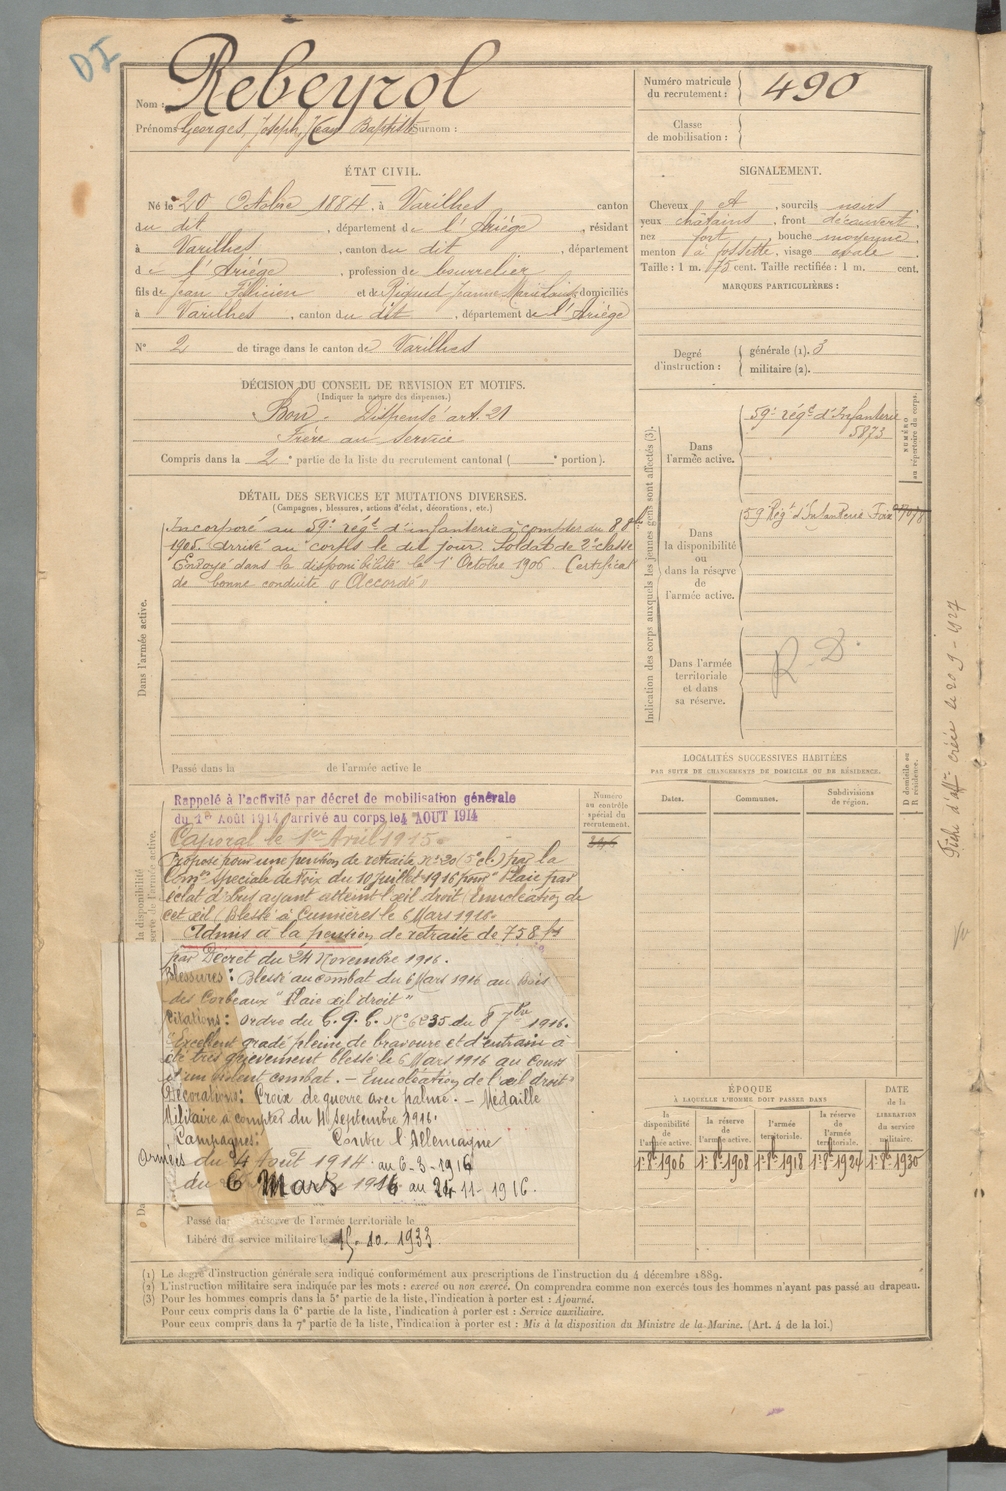 DI
Nom : Rebeyrol
Prénoms Georges, Joseph, Jean Baptiste Surnom :
Numéro matricule
du recrutement : 490
Classe
de mobilisation :
ÉTAT CIVIL.
Né le 20 Octobre 1884, à Varilhes canton
du dit, département de l'Ariége, résidant
à Varilhes, canton du dit, département
de l'Ariége, profession de bourrelier
fils de Jean Félicien et de Rigaud Jeanne Marie domiciliés
à Varilhes, canton du dit, département de l'Ariége
N° 2 de tirage dans le canton de Varilhes
SIGNALEMENT.
Cheveux et, sourcils noirs
yeux châtains, front découvert,
nez fort, bouche moyenne,
menton à fossette, visage ovale.
Taille : 1 m. 75 cent. Taille rectifiée : 1 m. cent.
MARQUES PARTICULIÈRES :
Degré
d'instruction :
générale (1). 3
militaire (2).
DÉCISION DU CONSEIL DE REVISION ET MOTIFS.
(Indiquer la nature des dispenses.)
Bon. Dispensé art. 21
Frère au service
Compris dans la 2e partie de la liste du recrutement cantonal ( e portion).
DÉTAIL DES SERVICES ET MUTATIONS DIVERSES.
(Campagnes, blessures, actions d'éclat, décorations, etc.)
Dans l'armée active.
Incorporé au 59e régt d'infanterie à compter du 8 8bre
1905. arrivé au corps le dit jour. Soldat de 2e classe
Envoyé dans la disponibilité le 1er Octobre 1906. Certificat
de bonne conduite « Accordé »
Passé dans la de l'armée active le
Indication des corps auxquels les jeunes gens sont affectés (3).
NUMÉRO
au répertoire du corps.
Dans
l'armée active.
59e régt d'Infanterie
5873
Dans
la disponibilité
ou
dans la réserve
de
l'armée active.
59 Régt d'Infanterie Foix
Dans l'armée
territoriale
et dans
sa réserve.
R. D.
Fiche d'affon créée le 20 9 - 1927
la disponibilité
serve de l'armée active.
Rappelé à l'activité par décret de mobilisation générale
du 1er Août 1914, arrivé au corps le 4 AOUT 1914
Caporal le 1er Avril 1915.
Proposé pour une pension de retraite N° 20 (5e cl.) par la
Comon Spéciale de Foix du 10 juillet 1916 pour "Plaie par
éclat d'obus ayant atteint l'œil droit (Enucléation de
cet œil) Blessé à Cumières le 6 Mars 1916.
Admis à la pension de retraite de 758 frs
par Décret du 24 Novembre 1916.
Blessures : Blessé au combat du 6 Mars 1916 au Bois
des Corbeaux "Plaie œil droit"
Citations : Ordre du G. Q. G. N° 6235 du 8 7bre 1916.
"Excellent gradé plein de bravoure et d'entrain a
été très grièvement blessé le 6 Mars 1916 au cours
d'un violent combat. - Enucléation de l'œil droit"
Décorations : Croix de guerre avec palme. - Médaille
Militaire à compter du 4 Septembre 1916.
Campagnes : Contre l'Allemagne
Armées du 4 Août 1914 au 6-3-1916
du 6 Mars 1916 au 24-11-1916.
Passé dans réserve de l'armée territoriale le
Libéré du service militaire le 15-10-1933
Numéro
au contrôle
spécial du
recrutement.
LOCALITÉS SUCCESSIVES HABITÉES
PAR SUITE DE CHANGEMENTS DE DOMICILE OU DE RÉSIDENCE.
Dates.
Communes.
Subdivisions
de région.
D domicile ou
R résidence.
ÉPOQUE
À LAQUELLE L'HOMME DOIT PASSER DANS
la
disponibilité
de
l'armée active.
la réserve
de
l'armée active.
l'armée
territoriale.
la réserve
de
l'armée
territoriale.
DATE
de la
LIBÉRATION
du service
militaire.
1er 8bre 1906
1er 8bre 1908
1er 8bre 1918
1er 8bre 1924
1er 8bre 1930
(1) Le degré d'instruction générale sera indiqué conformément aux prescriptions de l'instruction du 4 décembre 1889.
(2) L'instruction militaire sera indiquée par les mots : exercé ou non exercé. On comprendra comme non exercés tous les hommes n'ayant pas passé au drapeau.
(3) Pour les hommes compris dans la 5e partie de la liste, l'indication à porter est : Ajourné.
Pour ceux compris dans la 6e partie de la liste, l'indication à porter est : Service auxiliaire.
Pour ceux compris dans la 7e partie de la liste, l'indication à porter est : Mis à la disposition du Ministre de la Marine. (Art. 4 de la loi.)